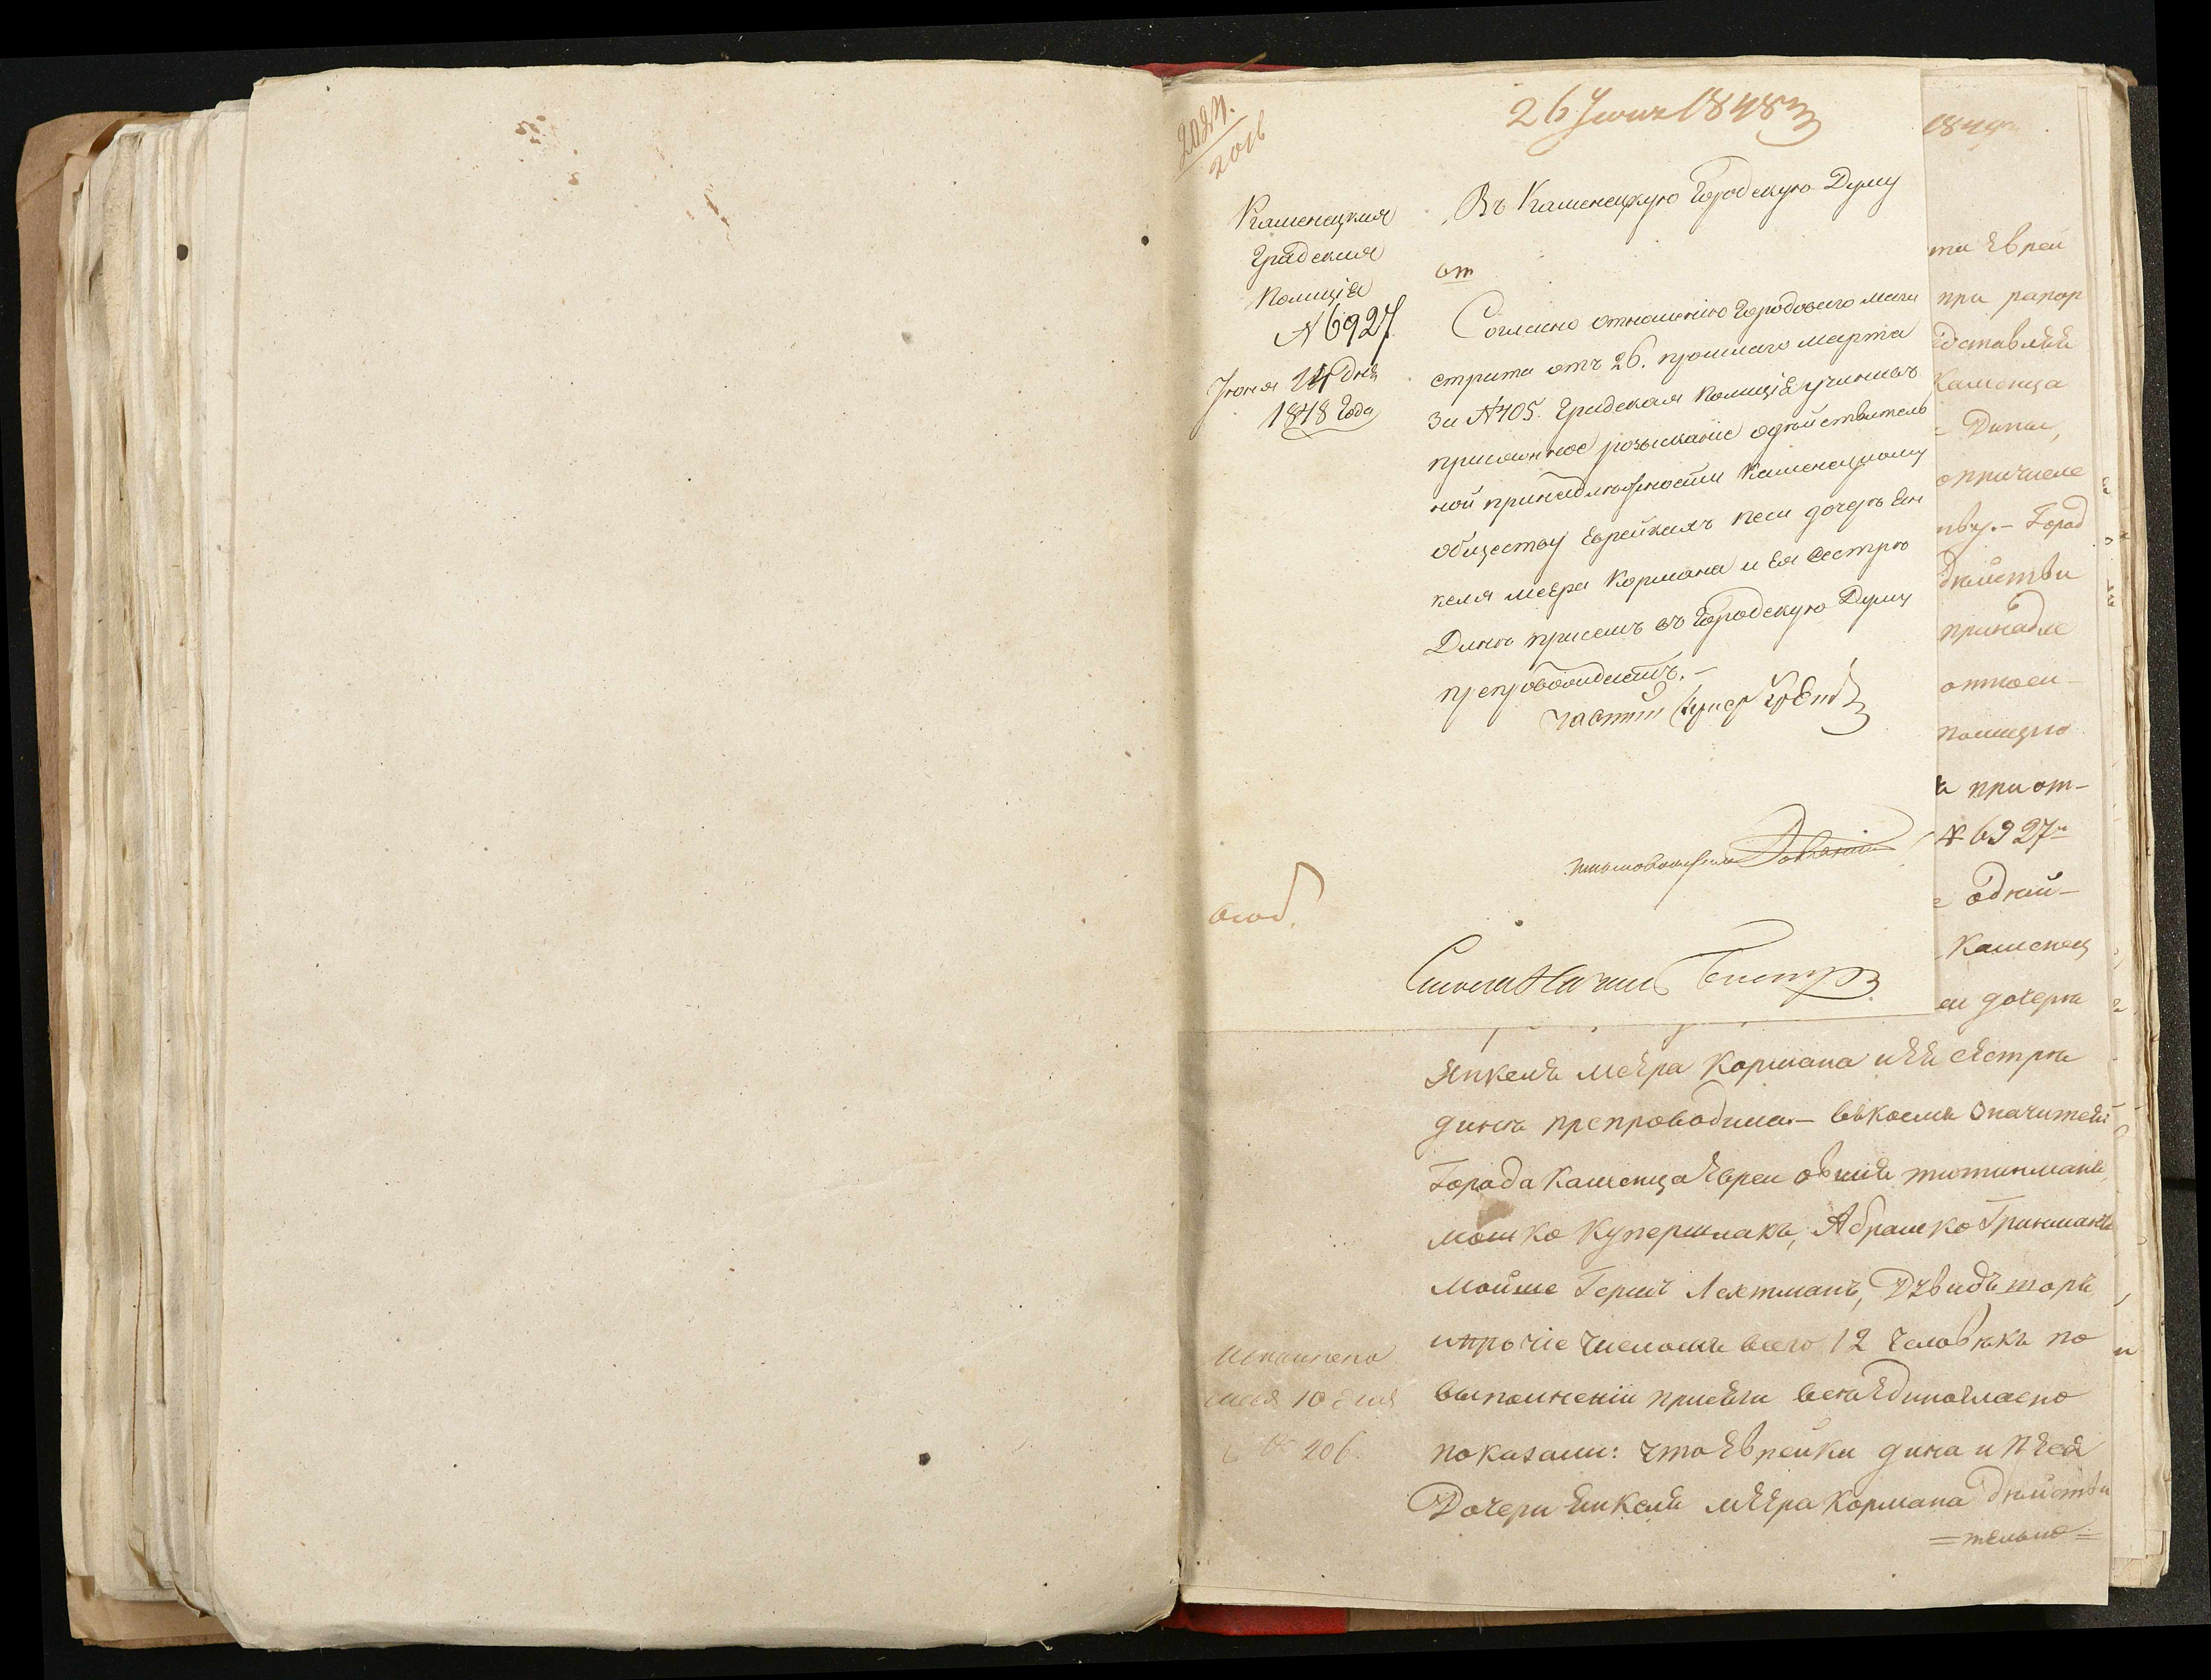 2024.
2016
26 Июня 1848
Каменецкая
Градская
Полиція
№ 6927
Июня 14 дня
1848 Года
Въ Каменецкую Городскую Думу
от
Согласно отношенію Городоваго маги
страта отъ 26. прошлаго марта
за № 405. Градская Полиція учинивъ
присяжное розысканіе о действитель
ной принадлежности Каменецкому
обществу Еврейкахъ Песи дочерѣ Ен
келя меера Кормана и Ея Сестрѣ
Динѣ присемъ въ Городскую Думу
препровождаетъ.-
Частній
Столоначаль
1849
ти Еврей
при рапор
едставлен
Каменца
- Дины,
о причисле
тву.- Город
дѣйстви
принадле
относи-
полицію
при от-
№ 6927
одѣй-
Каменец
дочери
Янкеля меера Кормана и Ея сестры
дины препроводила.- въ коемъ значитель
Города Каменца Евреи овшія тютинманъ,
мошко Купершлакъ, Абрамко Гринманъ
мойше Гершъ Лехтманъ, Дувидъ шоръ
и прочіе числомъ всего 12 человѣкъ по
выполненіи присяги всѣ Единогласно
показали: что Еврейки дина и песя
Дочери Янкеля меера Кормана дѣйстви
=тельно=
Исполнено
10 дня
№ 206.